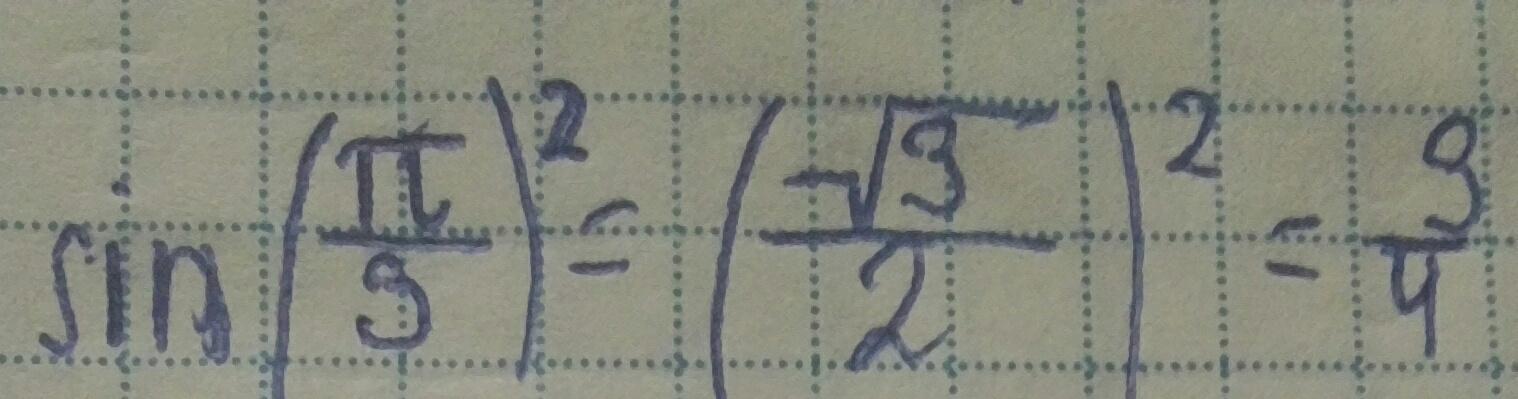 sin(π/3)² = (√3/2)² = 3/4